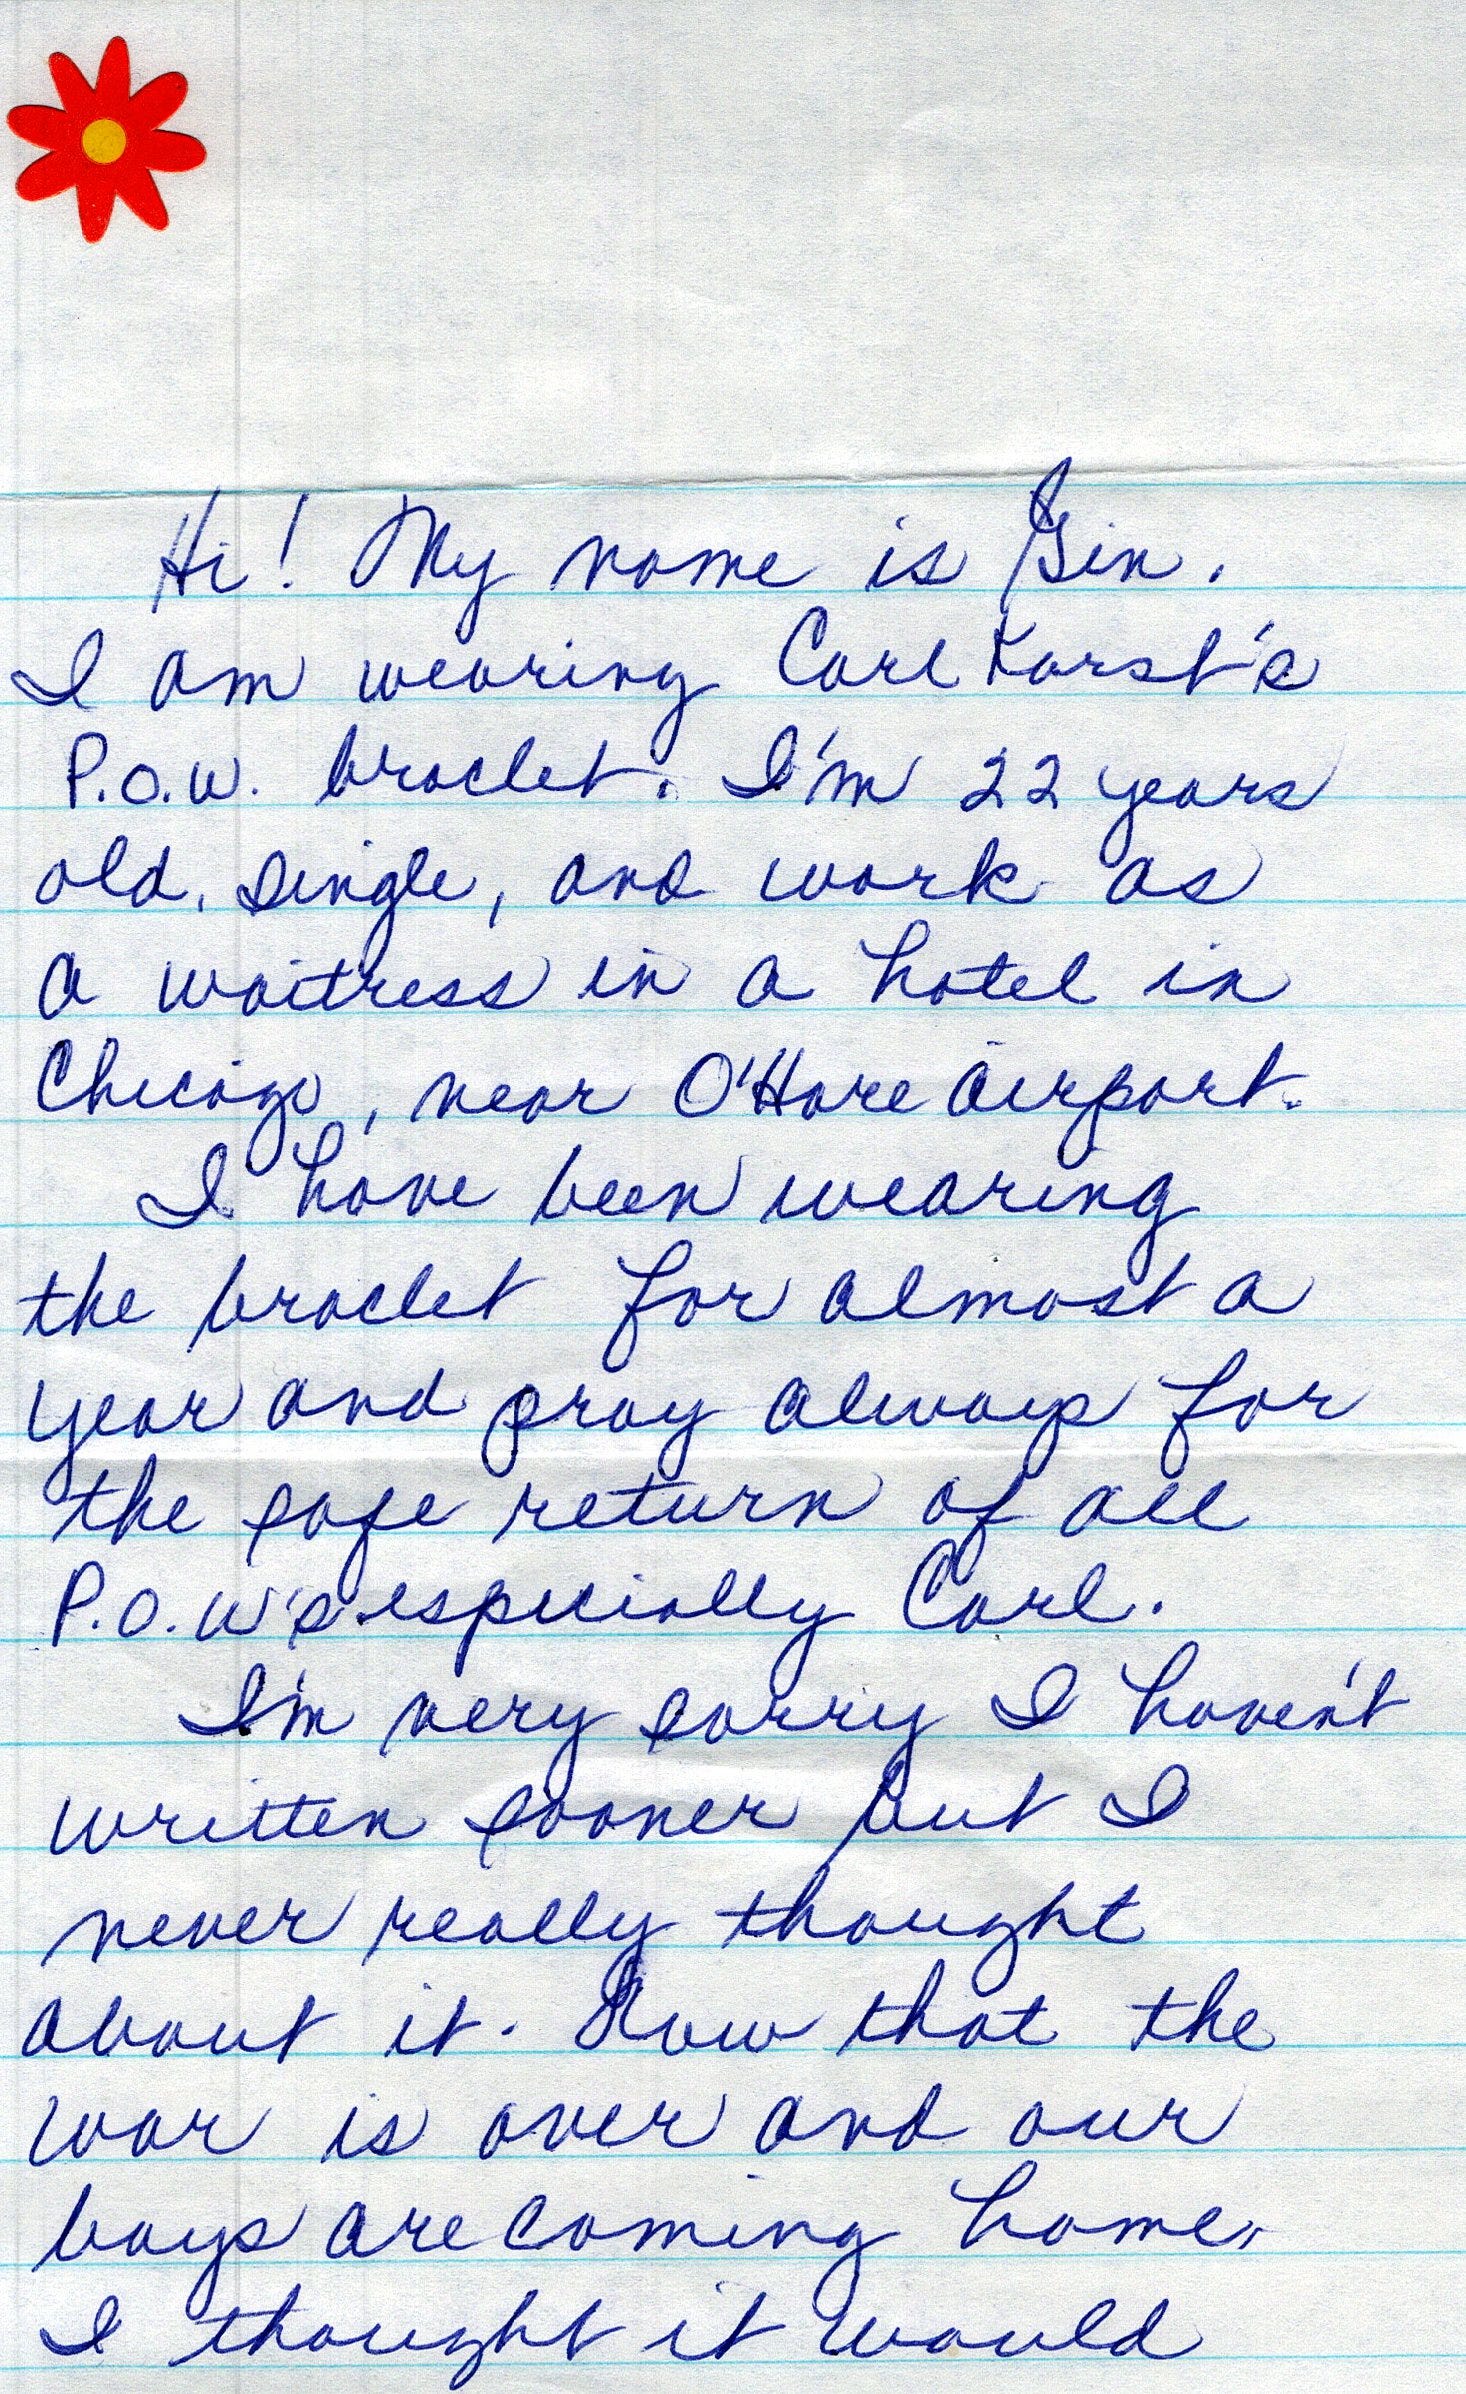 Hi! My name is Gin.
I am wearing Carl Karst's
P.O.W. braclet. I'm 22 years
old, single, and work as
a waitress in a hotel in
Chicago, near O'Hare airport.
I have been wearing
the braclet for almost a
year and pray always for
the safe return of all
P.O.W's especially Carl.
I'm very sorry I haven't
written sooner but I
never really thought
about it. Now that the
war is over and our
boys are coming home,
I thought it would